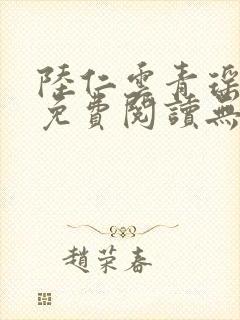 陸仁雲青瑶
免費閱讀無
趙荣春